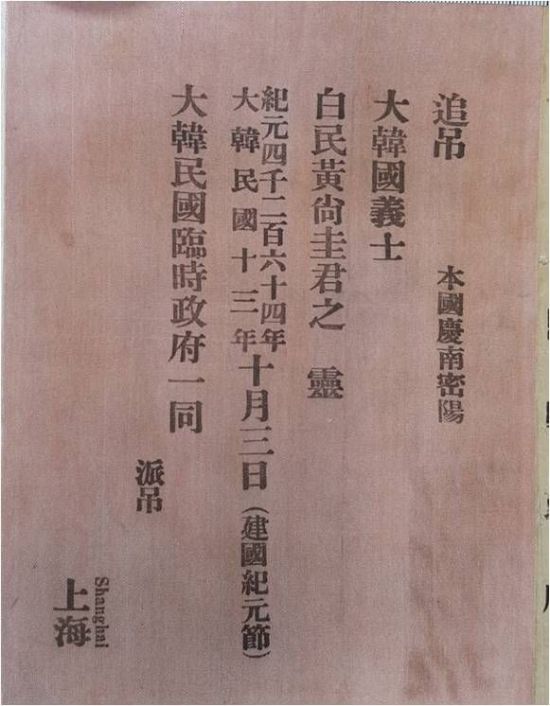 追吊
本國慶南密陽
大韓國義士
白民黃尙圭君之 靈
紀元四千二百六十四年
大韓民國十三年
十月三日(建國紀元節)
大韓民國臨時政府一同
派吊
Shanghai
上海